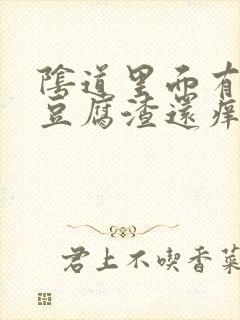 陰道里面有
豆腐渣還痒
君上不喫香菜